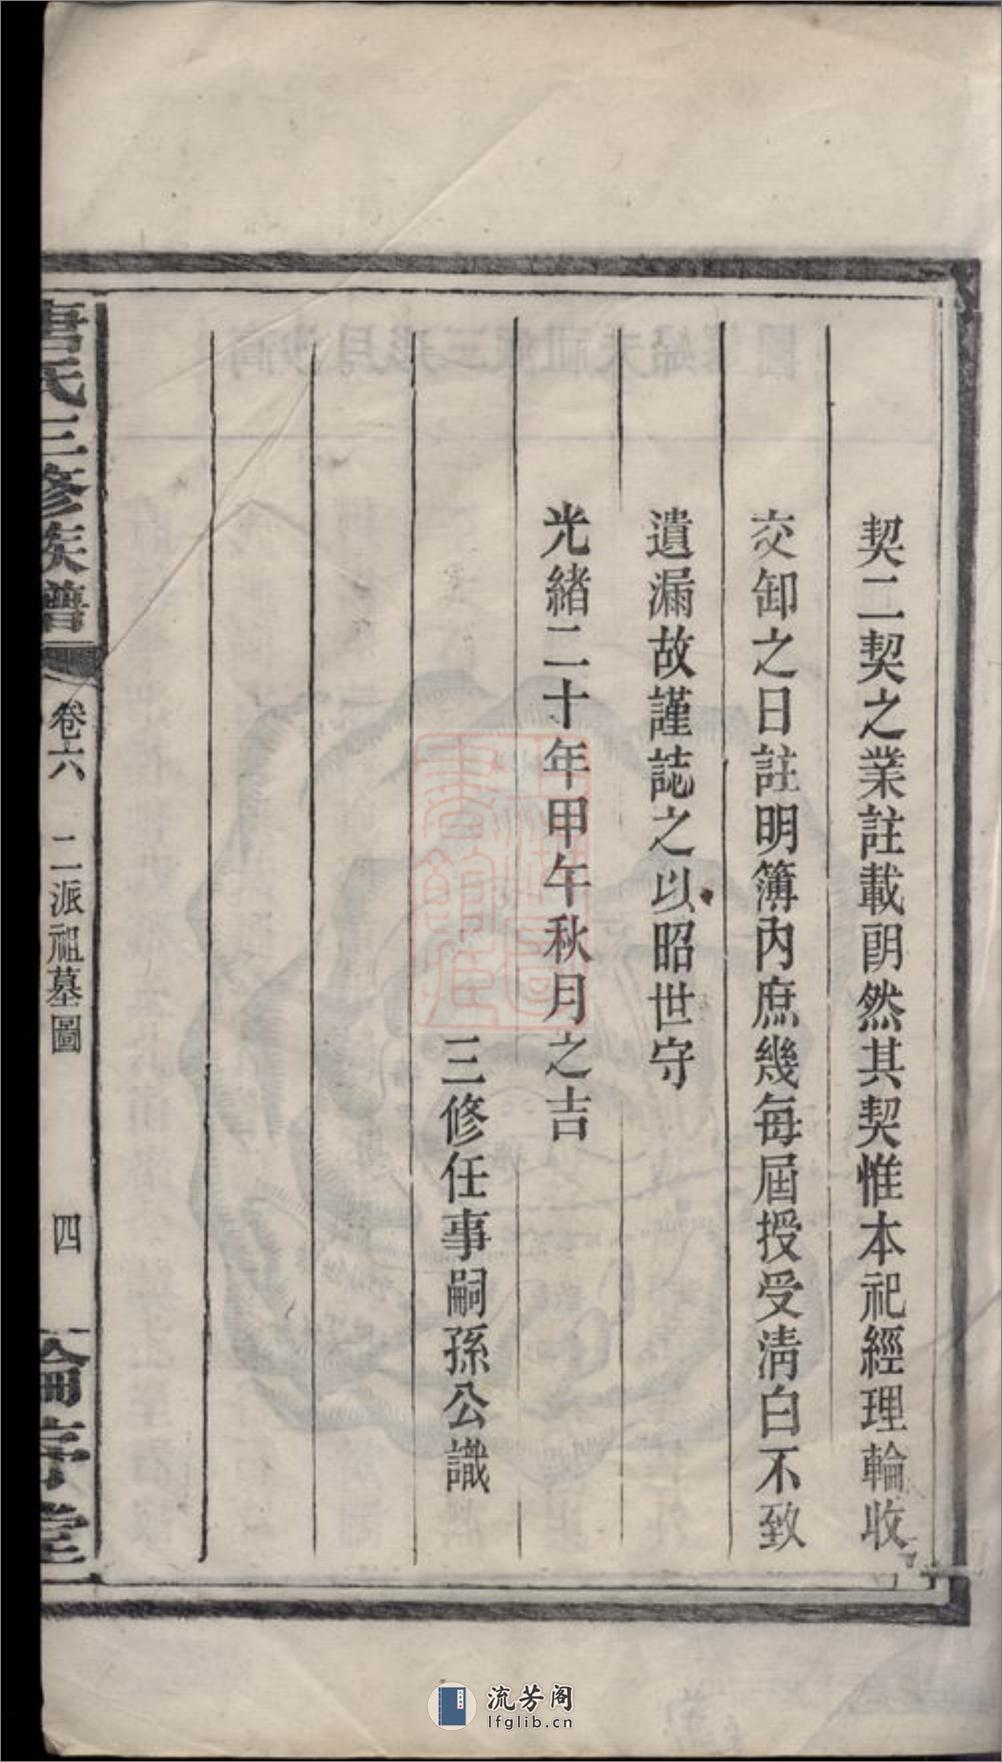 契二契之業註載朗然其契惟本祀經理輪收
交卸之日註明簿內庶幾每屆授受淸白不致
遺漏故謹誌之以昭世守
光緒二十年甲午秋月之吉
三修任事嗣孫公識
唐氏三修族譜
卷六 二派祖墓圖 四
倫序堂
流芳阁
lfglib.cn